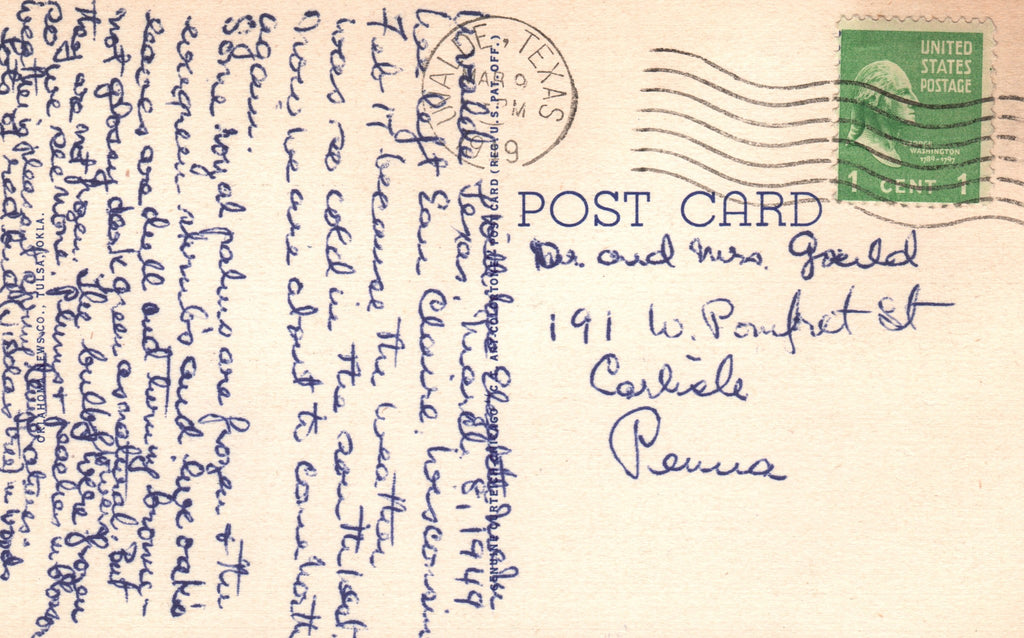 UVALDE, TEXAS
MAR 9
PM
UNITED
STATES
POSTAGE
GEORGE
WASHINGTON
1789-1797
1 CENT 1
POST CARD
Dr. and Mrs. Gould
191 W. Pomfret St
Carlisle
Penna
Uvalde Texas, March 8, 1949
We left Eau Claire, Wisconsin
Feb 17 because the weather
was so cold in the southwest
Now we are about to come north
again.
Some royal palms are frozen & the
evergreen shrubs and live oaks
leaves are dull and turning brown -
not glossy dark green as natural. But
they are not frozen. The bulb flowers were frozen
so we see none. Plums & peaches in bloom
Weather is pleasant
Lots of red in woods
OKLAHOMA NEWS CO., TULSA, OKLA.
POST CARD (REG. U. S. PAT. OFF.)